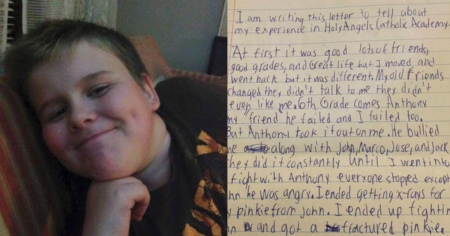 I am writing this letter to tell about
my experience in Holy Angels Catholic Academy.
At first it was good lots of friends,
good grades, and great life but I moved, and
went back but it was different. My old friends
changed they didn't talk to me they didn't
even like me. 6th Grade comes Anthony
my friend he failed and I failed too.
But Anthony took it out on me. he bullied
me along with John, Marco, Jose, and Jack
they did it constantly until I went into
fight with Anthony everyone stopped except
he was angry. I ended getting x-rays for
pinkie from john. I ended up fighting
and got a fractured pinkie.